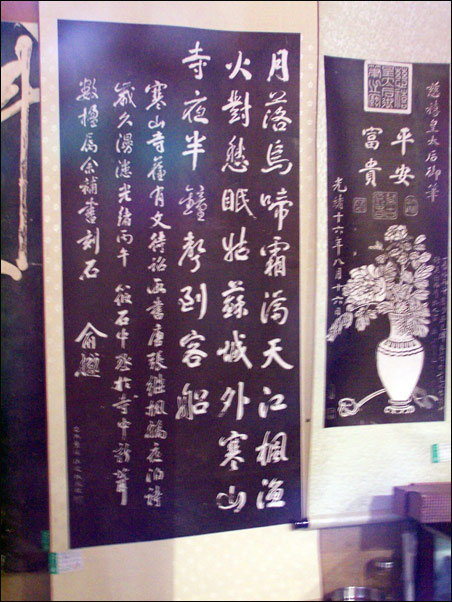 慈禧皇太后御筆
平安
富貴
光緒十六年八月十六日
月落烏啼霜滿天江楓漁
火對愁眠姑蘇城外寒山
寺夜半鐘聲到客船
寒山寺舊有文待詔所書唐張繼楓橋夜泊詩
歲久漫漶光緒丙午筱石中丞於寺中新葺
數楹屬余補書刻石 俞樾